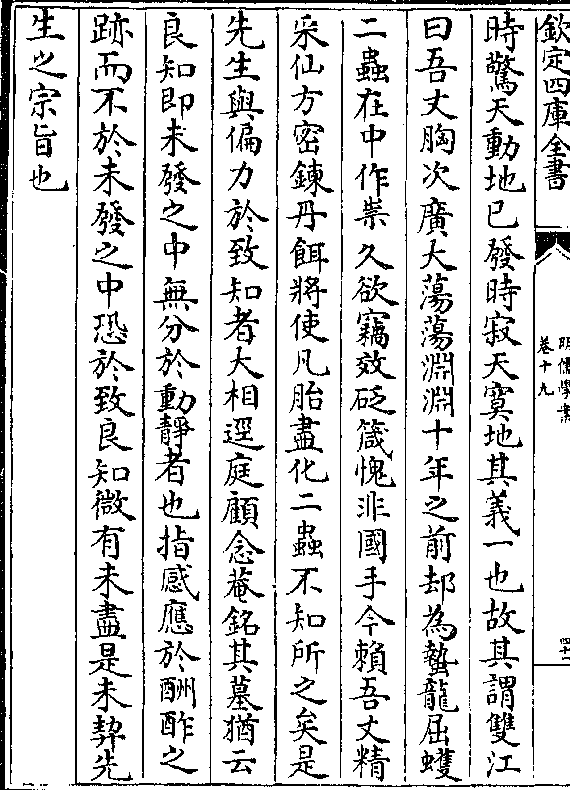 欽定四庫全書
明儒學案
卷十九
四十一
時驚天動地已發時寂天寞地其義一也故其謂雙江
曰吾丈胸次廣大蕩蕩淵淵十年之前却為蟄龍屈蠖
二蟲在中作祟久欲竊效砭箴愧非國手今賴吾丈精
采仙方密鍊丹餌將使凡胎盡化二蟲不知所之矣是
先生與偏力於致知者大相逕庭顧念菴銘其墓猶云
良知即未發之中無分於動靜者也指感應於酬酢之
跡而不於未發之中恐於致良知微有未盡是未契先
生之宗旨也